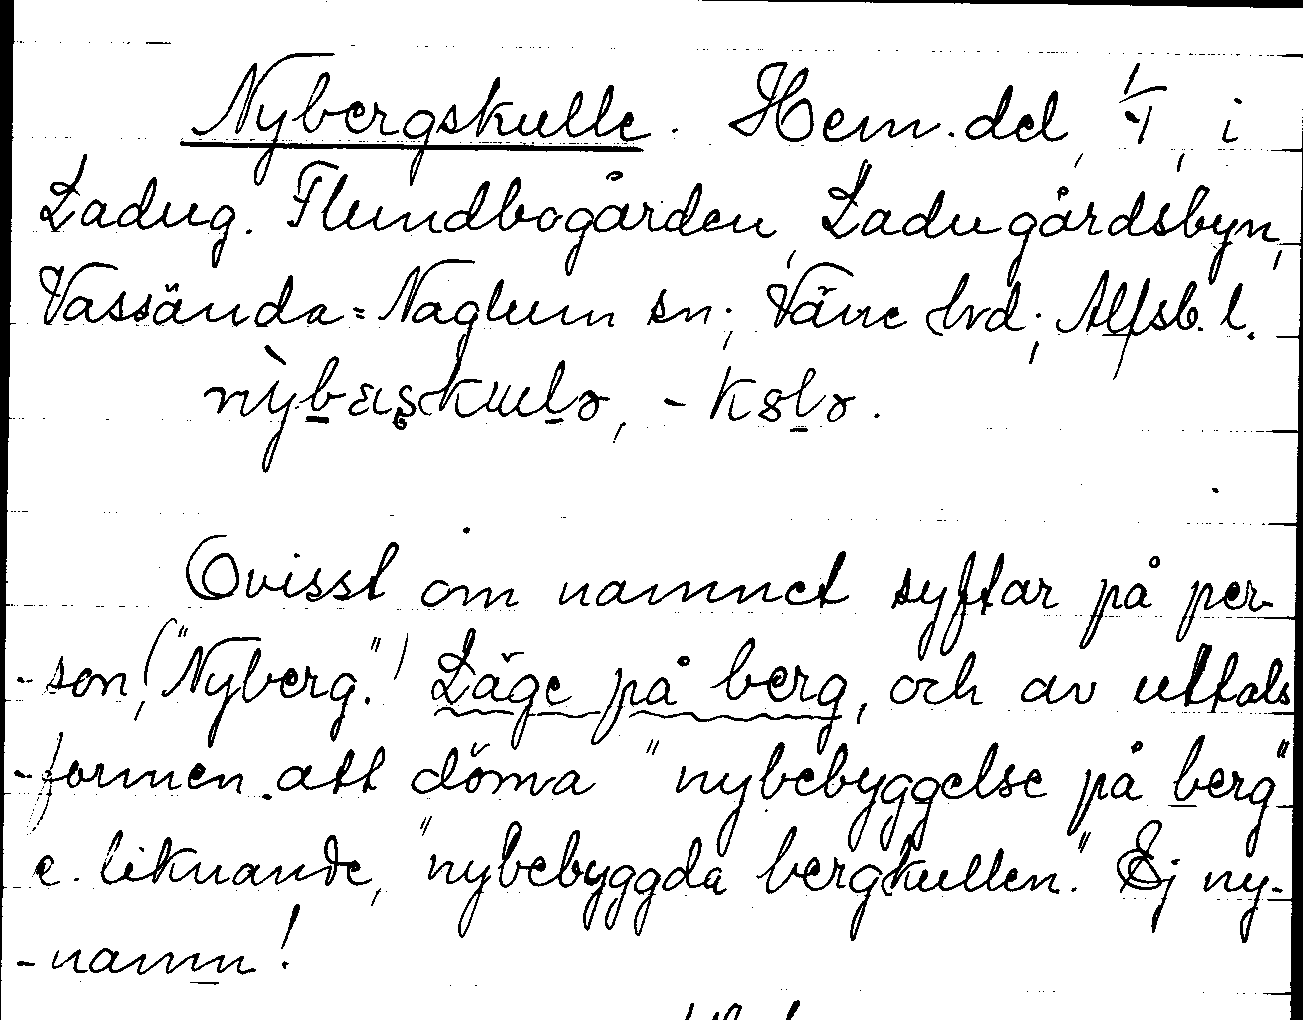 Nybergskulle. Hem.del, 1/1, i
Ladug. Flundbogården, Ladugårdsbyn,
Vassända-Naglum sn; Väne hrd; Älfsb. l.
Ovisst om namnet syftar på per-
-son, ("Nyberg".) Läge på berg, och av uttals
-formen att döma "nybebyggelse på berg"
e. liknande, "nybebyggda bergkullen." Ej ny-
-namn!